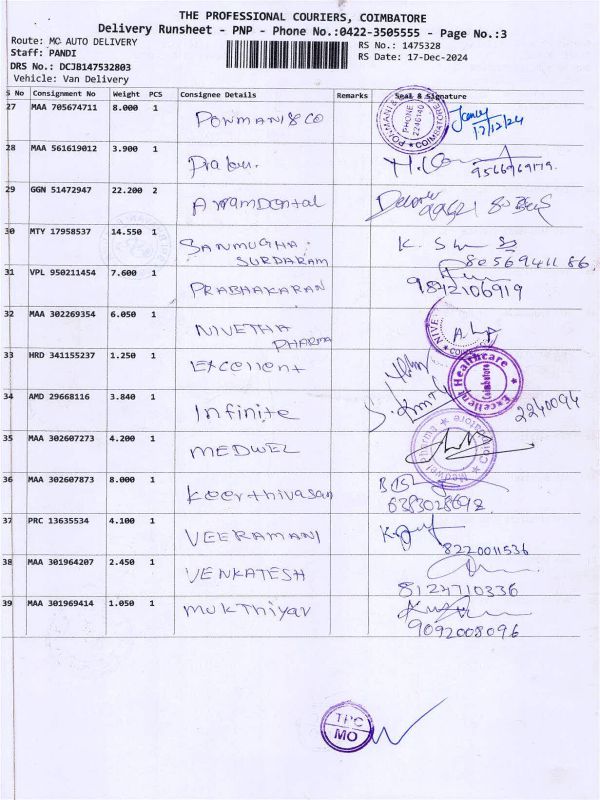 THE PROFESSIONAL COURIERS, COIMBATORE
Delivery Runsheet - PNP - Phone No.:0422-3505555 - Page No.:3
Route: MC AUTO DELIVERY
RS No.: 1475328
Staff: PANDI
RS Date: 17-Dec-2024
DRS No.: DCJB147532803
Vehicle: Van Delivery
S No Consignment No Weight PCS Consignee Details Remarks Seal & Signature
27 MAA 705674711 8.000 1 PONMANI & CO
PHONE 2246140 COIMBATORE
17/12/24
28 MAA 561619012 3.900 1 Prabu.
29 GGN 51472947 22.200 2
30 MTY 17958537 14.550 1 SANMUGHA SURDARAM
8056941186
31 VPL 950211454 7.600 1 PRABHAKARAN 9842106919
32 MAA 302269354 6.050 1 NIVETHA PHARMA
NIVE
33 HRD 341155237 1.250 1 Excellent
Excellent Healthcare Coimbatore
34 AMD 29668116 3.840 1 Infinite
2240094
35 MAA 302607273 4.200 1 MEDWEL
Medwel Pharma
36 MAA 302607873 8.000 1 Keerthivasan
6383028692
37 PRC 13635534 4.100 1 VEERAMANI
8220011536
38 MAA 301964207 2.450 1 VENKATESH
8124710336
39 MAA 301969414 1.050 1 mukthiyar
9092008096
TPC
MO